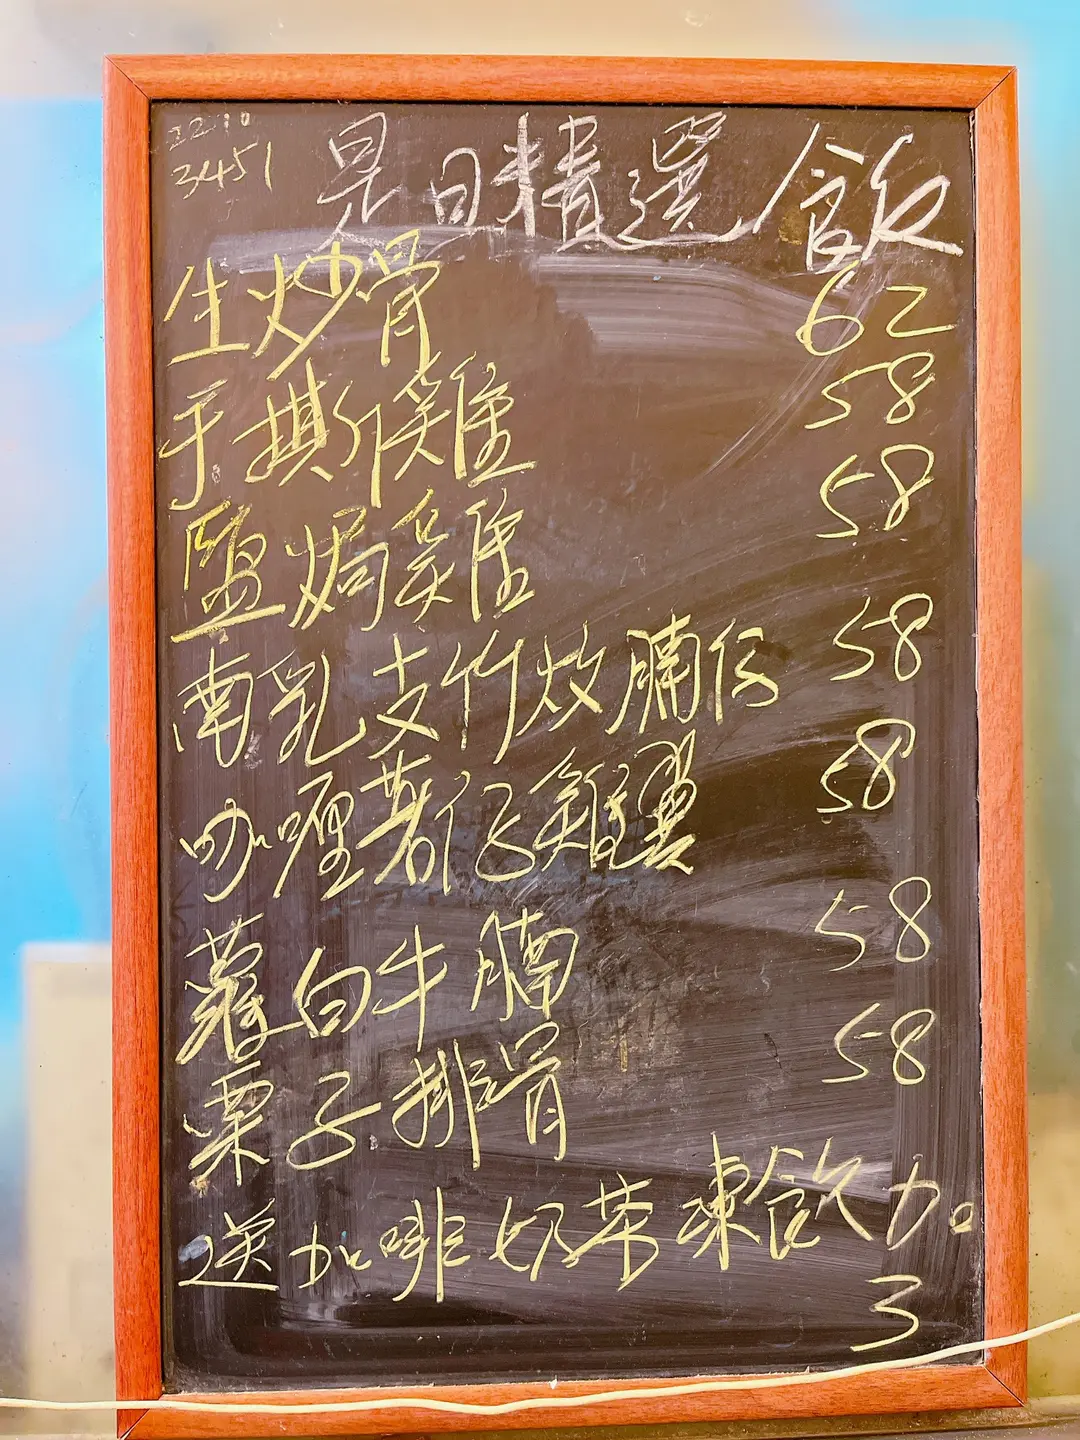 2210
3451
是日精選飯
生炒骨 62
手撕雞 58
鹽焗雞 58
南乳支竹炆腩仔 58
咖喱薯仔雞翼 58
蘿白牛腩 58
栗子排骨 58
送加啡奶茶凍飲加
3